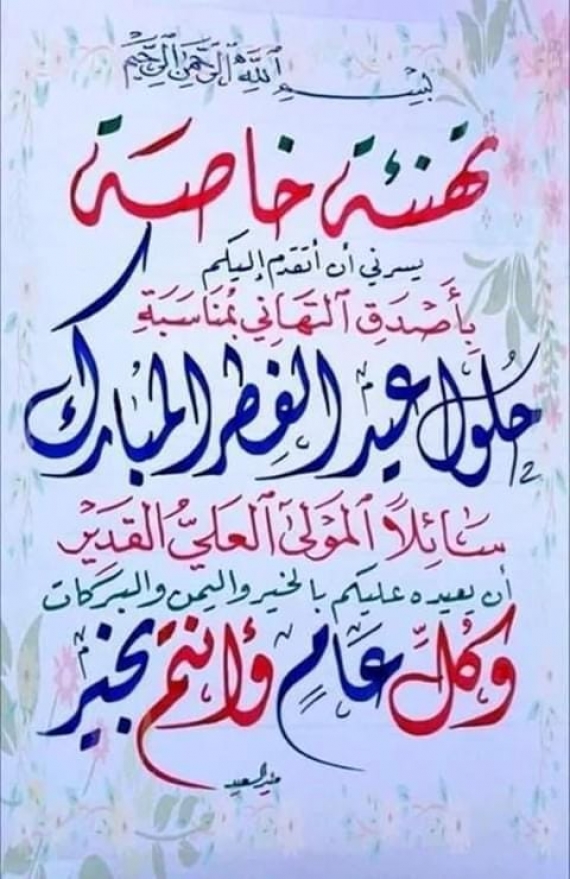 بسم الله الرحمن الرحيم
تهنئة خاصة
يسرني أن أتقدم إليكم
بِأَصْدَقِ ٱلتَّهَانِي بمُنَاسَبَةِ
حُلول عيد الفطر المبارك
سَائِلًا ٱلمَوْلَىٰ ٱلعَلِيُّ القَدِيْرِ
أن يعيده عليكم بالخير واليمن والبركات
وكُلِّ عَامٍ وأنتم بخير